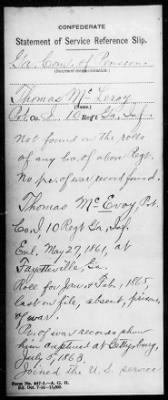 CONFEDERATE
Statement of Service Reference Slip.
Ga. Com. of Pensions
Thomas Mc Leroy
(Name.)
Co. 10 Regt Ga. Inf.
Not found on the rolls
of any co. of above Regt.
No pr. of war record found.
Thomas Mc Evoy, Pvt.
Co. I 10 Regt Ga. Inf.
Enl. May 27, 1861, at
Fayetteville, Ga.
Roll for Jan & Feb, 1865,
last on file, absent, prisoner
of war.
Pr. of war records show
him captured at Gettysburg,
July 3, 1863.
Joined the U.S. service